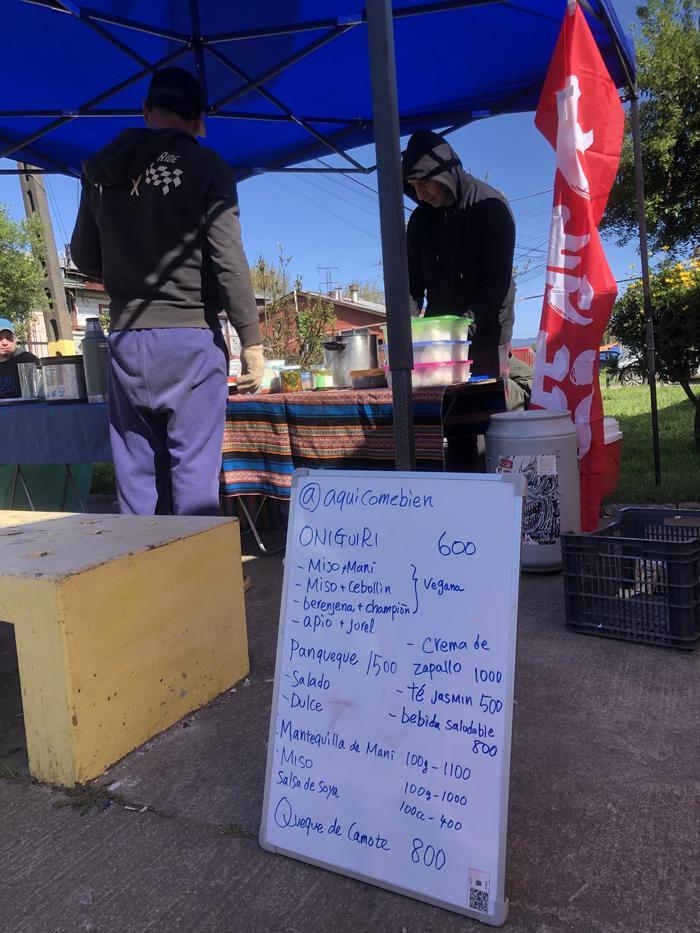 RIDE
@aquicomebien
ONIGUIRI 600
- Miso+Maní
- Miso+Cebollin
- berenjena + champion
} vegana
- apio + jurel
Panqueque 1500
- Salado
- Dulce
- Crema de
zapallo 1000
- té Jasmin 500
- bebida saludable
800
- Mantequilla de Maní 100g - 1100
Miso 100g - 1000
Salsa de soya 100cc - 400
Queque de Camote 800